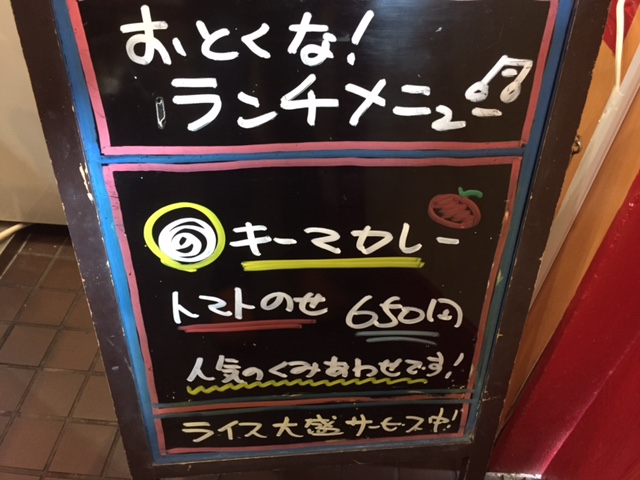 おトクな!
ランチメニュー
の キーマカレー
トマトのせ 650円
人気のくみあわせです!
ライス大盛サービス中!